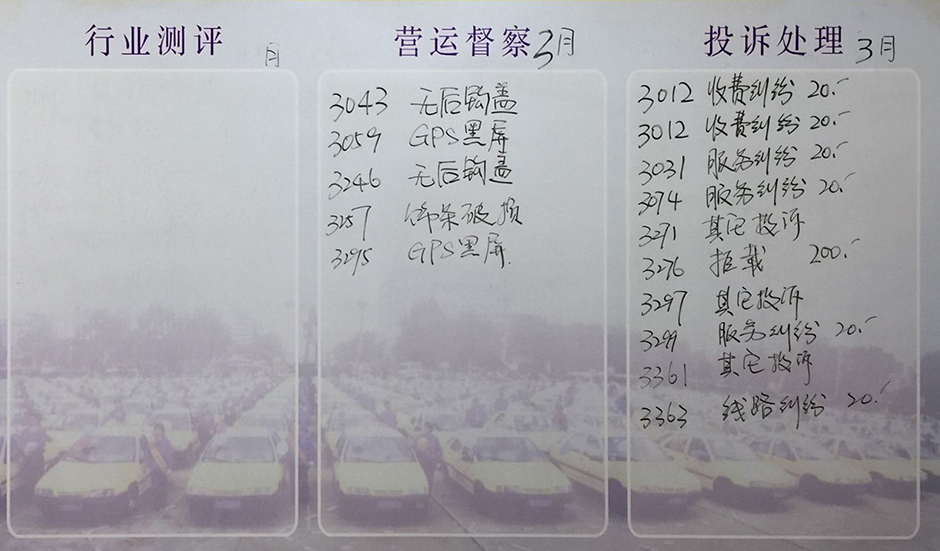 行业测评 月
营运督察 3月
3043 无后钩盖
3059 GPS黑屏
3246 无后钩盖
3257 饰条破损
3295 GPS黑屏.
投诉处理 3月
3012 收费纠纷 20.-
3012 收费纠纷 20.-
3031 服务纠纷 20.-
3074 服务纠纷 20.-
3271 其它投诉
3276 拒载 200.-
3297 其它投诉
3299 服务纠纷 20.-
3361 其它投诉
3363 线路纠纷 20.-